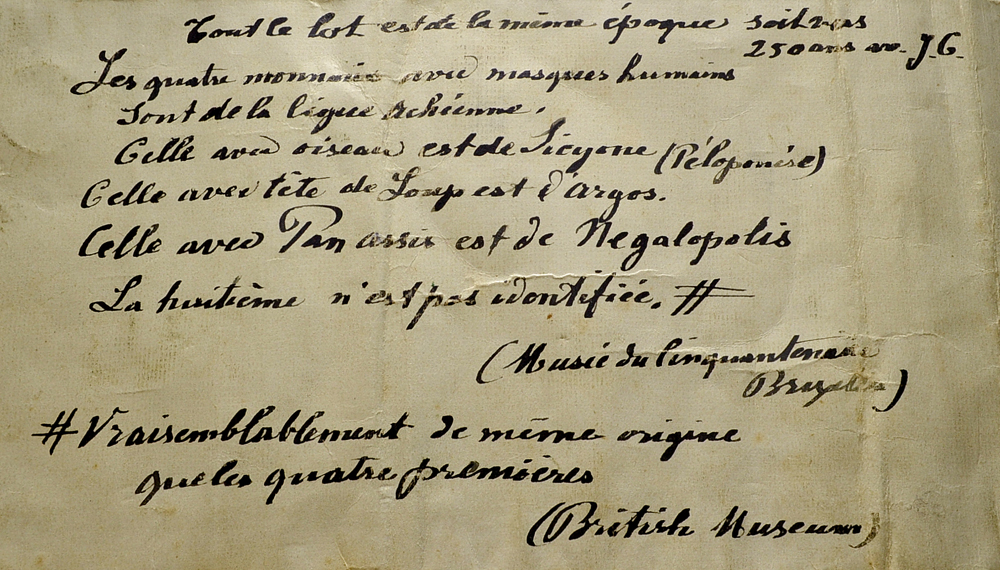 Tout le lot est de la même époque soit vers
250 ans av. J.C.
Les quatre monnaies avec masques humains
sont de la ligue Achéenne.
Celle avec oiseau est de Sicyone (Péloponèse)
Celle avec tête de Loup est d'Argos.
Celle avec Pan assis est de Megalopolis
La huitième n'est pas identifiée. #
(Musée du Cinquantenaire
Bruxelles)
# Vraisemblablement de même origine
que les quatre premières
(British Museum)